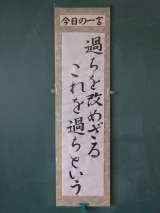 今日の一言
過ちを改めざる
これを過ちという